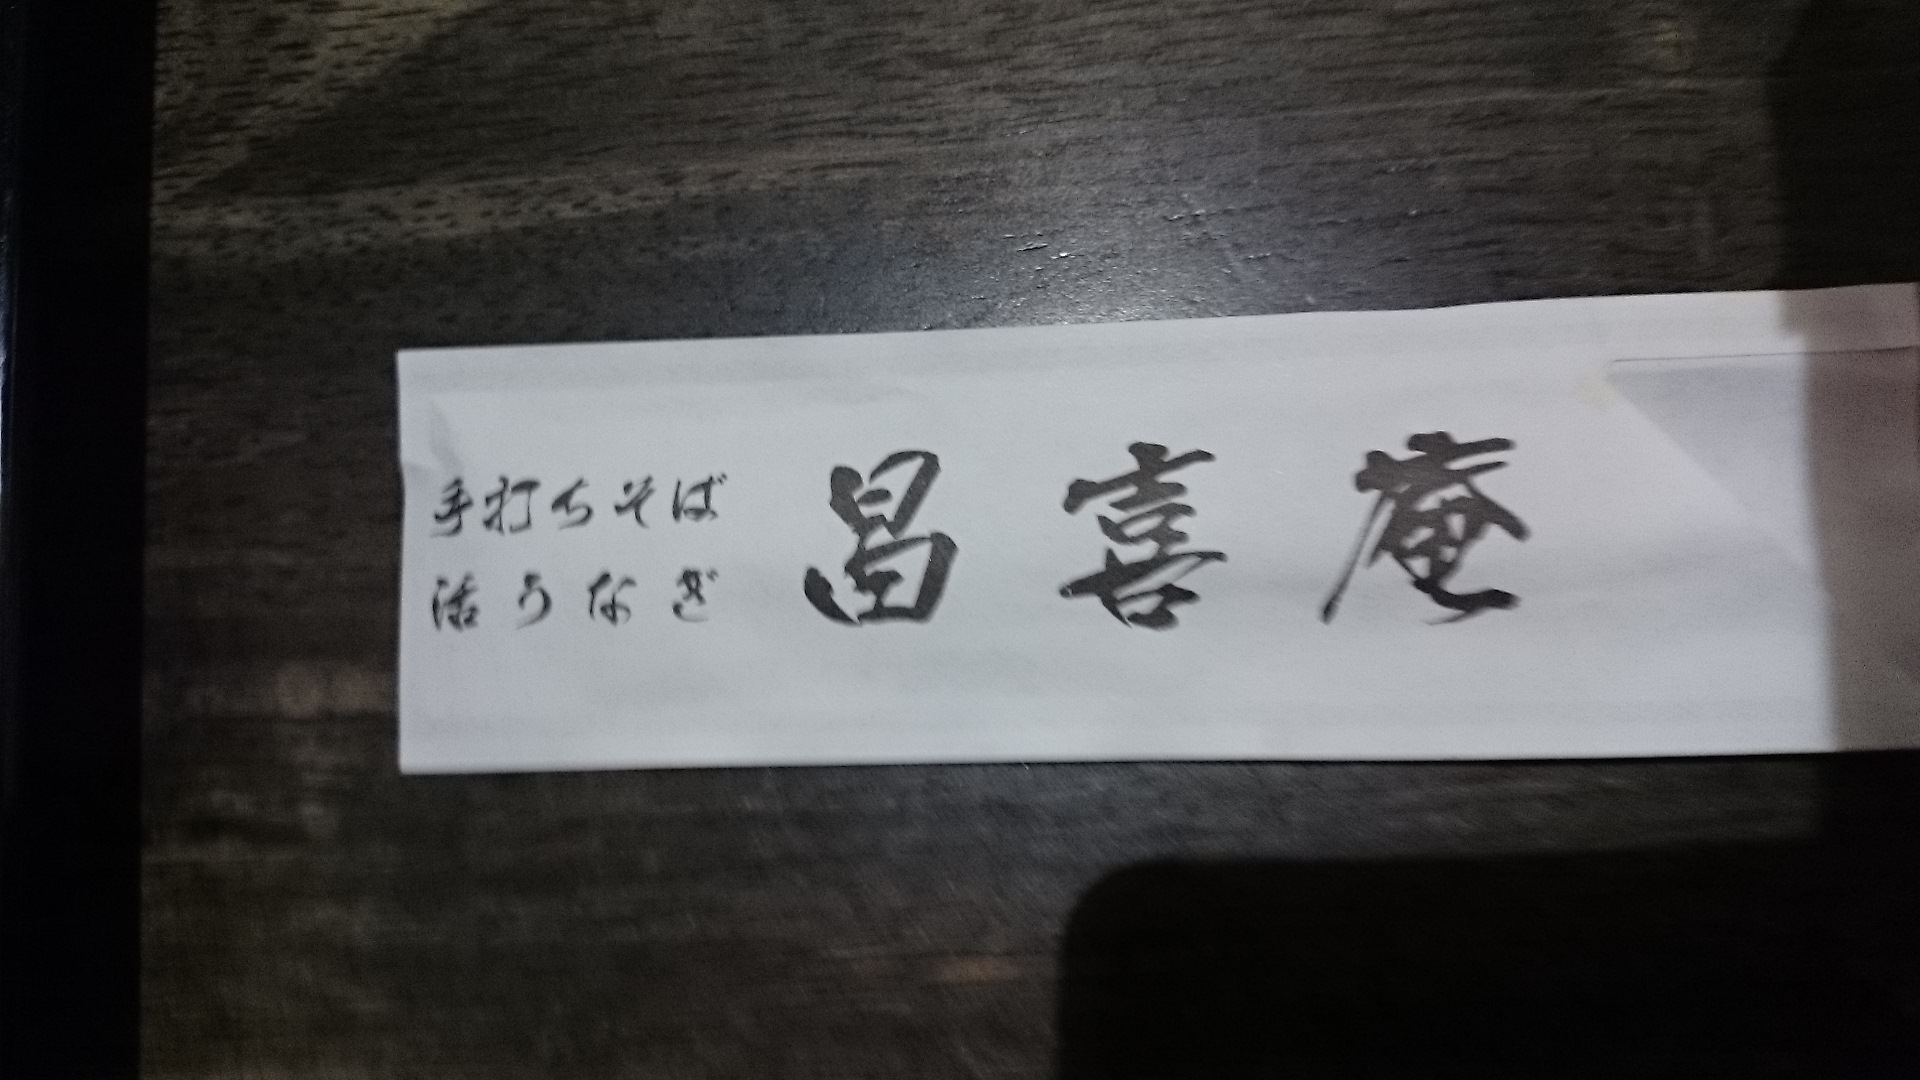 手打ちそば
活うなぎ
昌喜庵